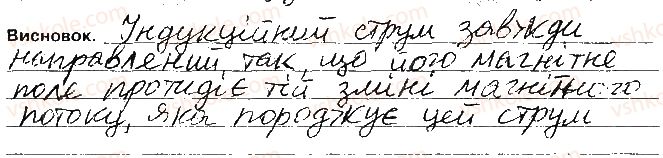 Висновок. Індукційний струм завжди
направлений так, що його магнітне
поле протидіє тій зміні магнітного
потоку, яка породжує цей струм